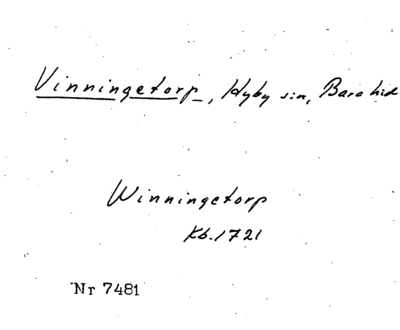 Vinningetorp, Hyby sn, Bara hd
Winningetorp
Kb. 1721
Nr 7481